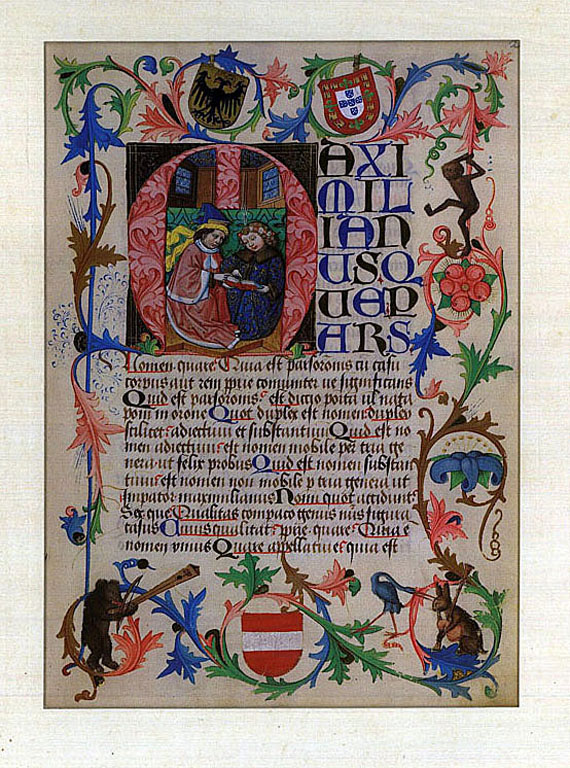 MAXI
MILI
IAN
USQ
UEP
ARS
Nomen quare Quia est pars oronis cū casu
corpus aut rem pprie comuniter ue significans
Quid est pars oronis est dictio posita uł nata
poni in orone Quot duplex est nomen duplex
scilicet adiectiuū et substantiuū Quid est no
men adiectiuū est nomen mobile per tria ge
nera ut felix probus Quid est nomen substan
tiuū est nomen non mobile p tria genera ut
Impator maximilianus Nomi quot accidunt
Sex que Qualitas compaco genus nūs figura
casus Cuius qualitatis pprie quare Quia e
nomen vnius Quare appellatiue quia est